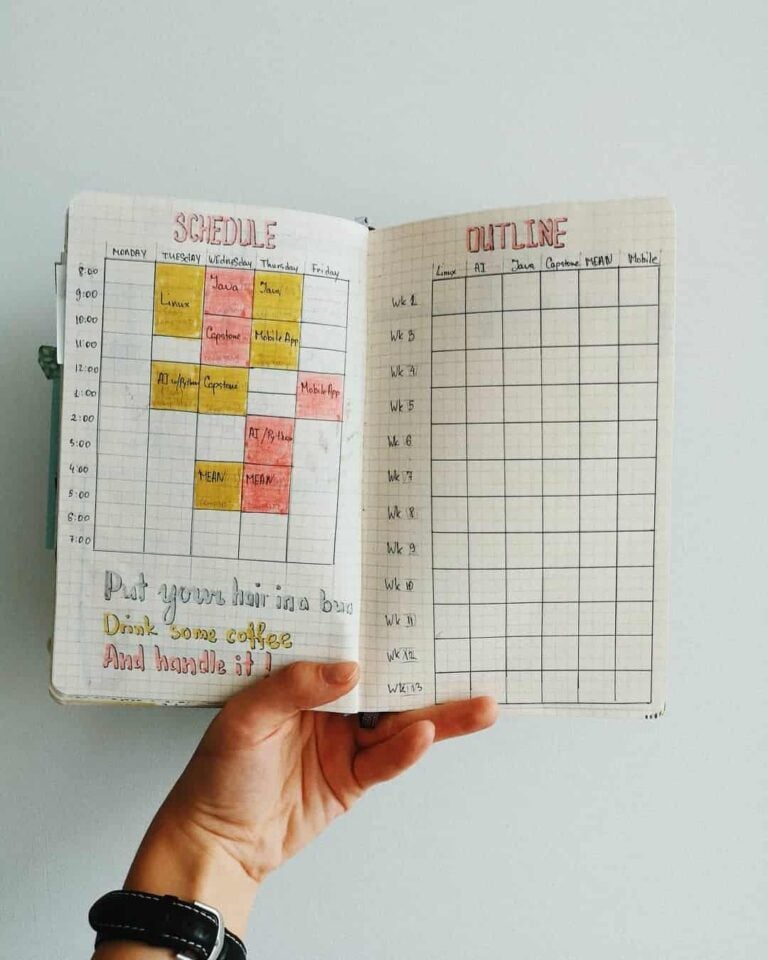 SCHEDULE
MONDAY TUESDAY Wednesday Thursday Friday
8:00
9:00 Linux Java Java
10:00
11:00 Capstone Mobile App
12:00
1:00 AI w/Python Capstone Mobile App
2:00
3:00 AI/Python
4:00
5:00 MEAN MEAN
6:00
7:00
Put your hair in a bun
Drink some coffee
And handle it!
OUTLINE
Linux AI Java Capstone MEAN Mobile
Wk 2
Wk 3
Wk 4
Wk 5
Wk 6
Wk 7
Wk 8
Wk 9
Wk 10
Wk 11
Wk 12
Wk 13